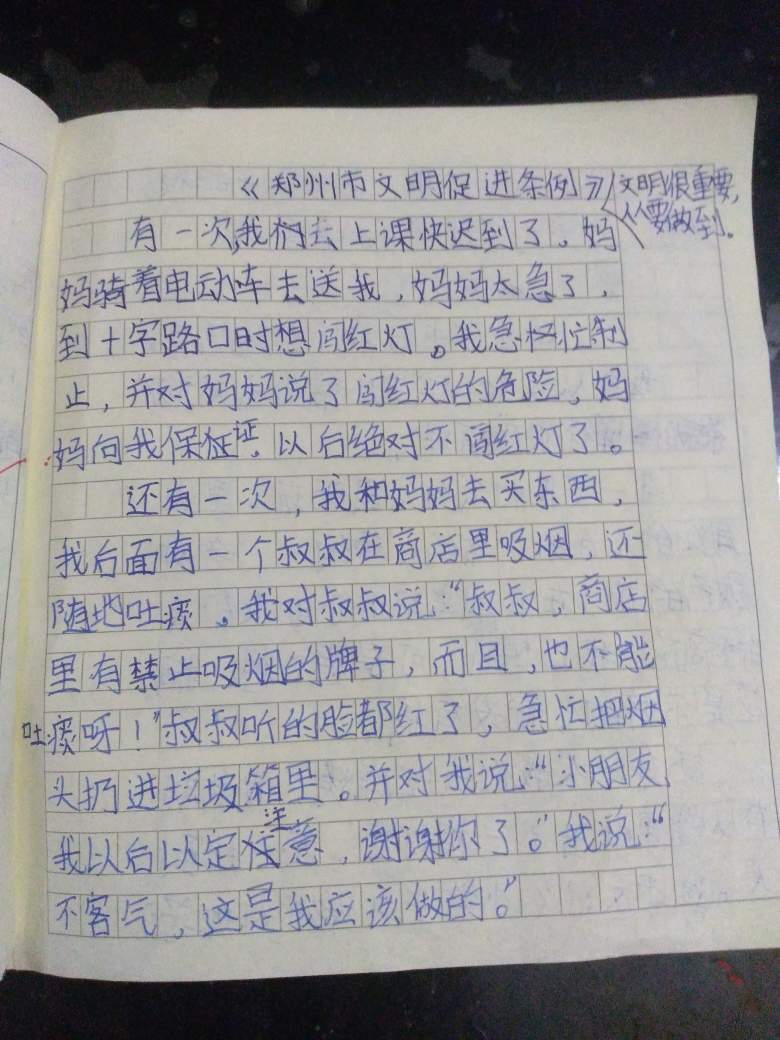 《郑州市文明促进条例》文明很重要,
人人要做到。
有一次,我们去上课快迟到了。妈
妈骑着电动车去送我,妈妈太急了,
到十字路口时想闯红灯。我急忙制
止,并对妈妈说了闯红灯的危险,妈
妈向我保证,以后绝对不闯红灯了。
还有一次,我和妈妈去买东西,
我后面有一个叔叔在商店里吸烟,还
随地吐痰。我对叔叔说:“叔叔,商店
里有禁止吸烟的牌子,而且,也不能
吐痰呀!”叔叔听的脸都红了,急忙把烟
头扔进垃圾箱里。并对我说:“小朋友
我以后以定注意,谢谢你了。”我说:“
不客气,这是我应该做的。”